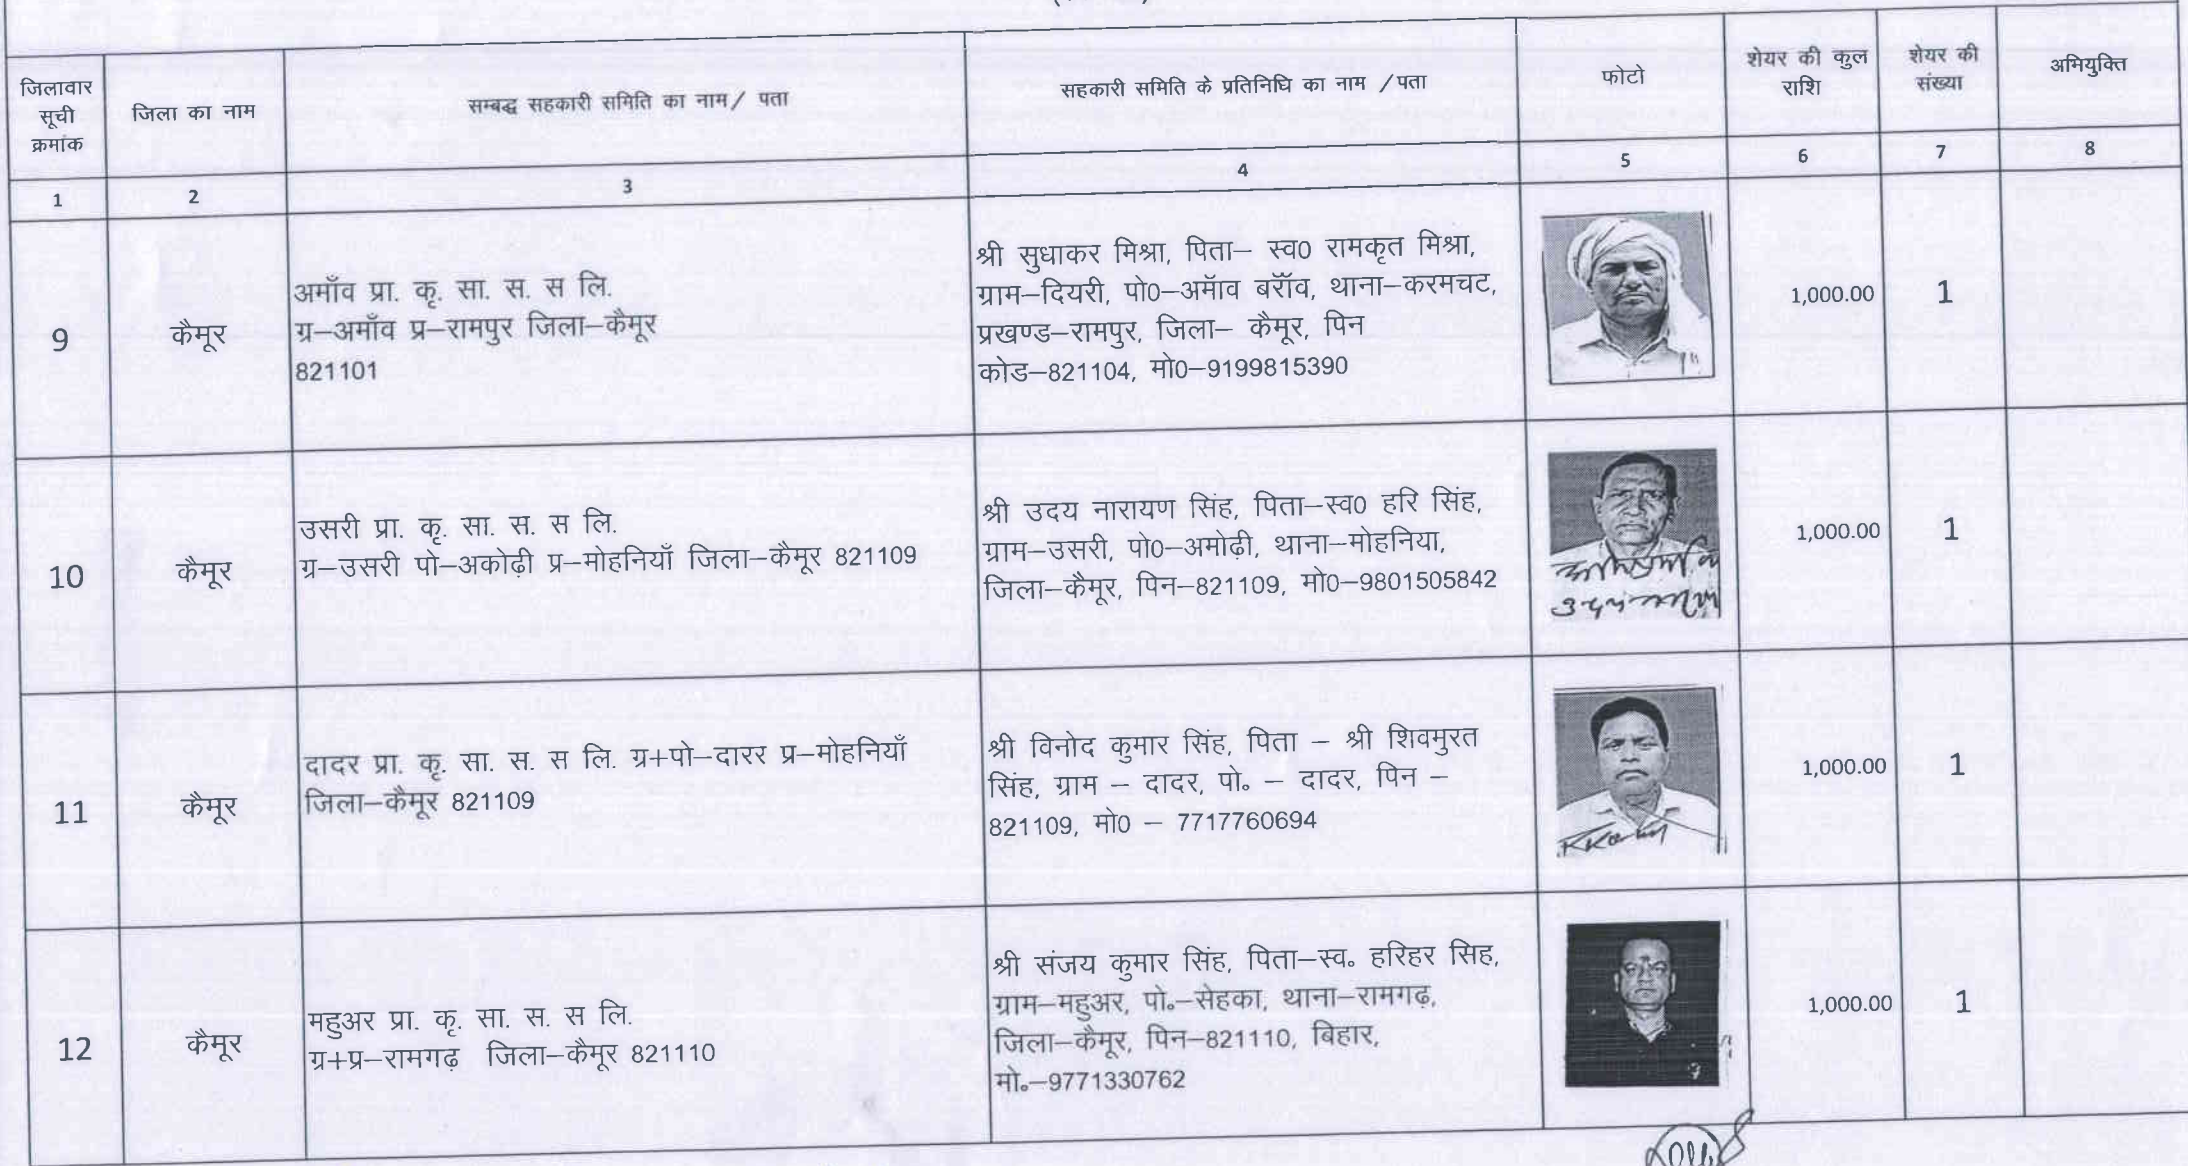 जिलावार
सूची
क्रमांक
जिला का नाम
सम्बद्ध सहकारी समिति का नाम/ पता
सहकारी समिति के प्रतिनिधि का नाम /पता
फोटो
शेयर की कुल
राशि
शेयर की
संख्या
अभियुक्ति
1
2
3
4
5
6
7
8
9
कैमूर
अमाँव प्रा. कृ. सा. स. स लि.
ग्र–अमाँव प्र–रामपुर जिला–कैमूर
821101
श्री सुधाकर मिश्रा, पिता– स्व0 रामकृत मिश्रा,
ग्राम–दियरी, पो0–अमॉव बरॉंव, थाना–करमचट,
प्रखण्ड–रामपुर, जिला– कैमूर, पिन
कोड–821104, मो0–9199815390
1,000.00
1
10
कैमूर
उसरी प्रा. कृ. सा. स. स लि.
ग्र–उसरी पो–अकोढ़ी प्र–मोहनियाँ जिला–कैमूर 821109
श्री उदय नारायण सिंह, पिता–स्व0 हरि सिंह,
ग्राम–उसरी, पो0–अमोढ़ी, थाना–मोहनिया,
जिला–कैमूर, पिन–821109, मो0–9801505842
1,000.00
1
11
कैमूर
दादर प्रा. कृ. सा. स. स लि. ग्र+पो–दारर प्र–मोहनियाँ
जिला–कैमूर 821109
श्री विनोद कुमार सिंह, पिता – श्री शिवमुरत
सिंह, ग्राम – दादर, पो. – दादर, पिन –
821109, मो0 – 7717760694
1,000.00
1
12
कैमूर
महुअर प्रा. कृ. सा. स. स लि.
ग्र+प्र–रामगढ़ जिला–कैमूर 821110
श्री संजय कुमार सिंह, पिता–स्व. हरिहर सिह,
ग्राम–महुअर, पो.–सेहका, थाना–रामगढ़,
जिला–कैमूर, पिन–821110, बिहार,
मो.–9771330762
1,000.00
1